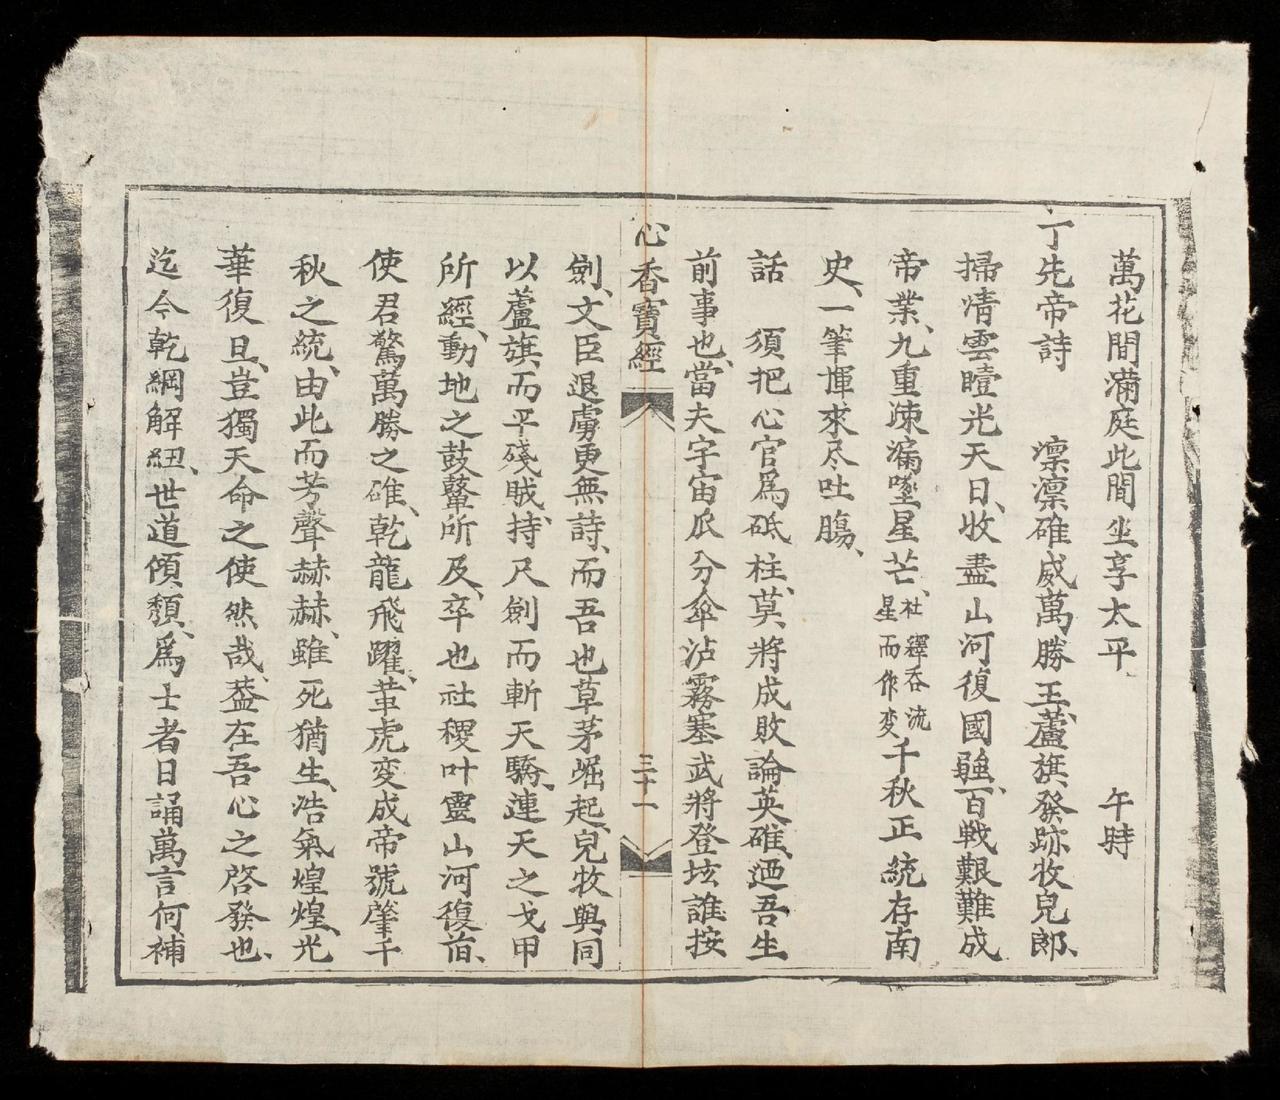 萬花間滿庭此間坐享太平、　午時
丁先帝詩　凛凛碓威萬勝王、蘆旗發跡牧兒郎、
掃清雲曀光天日、收盡山河復國疆、百戰艱難成
帝業、九重疎漏墜星芒、社釋吞流星而作变千秋正統存南
史、一筆揮來尽吐膓、
話　須把心官爲砥柱、莫將成敗論英碓、迺吾生
前事也、當夫宇宙瓜分傘沾霧塞武將登坛誰按
心香寶經　三十一
劍、文臣退虜更無詩、而吾也草茅崛起、兒牧與同
以蘆旗而平殘賊、持尺劍而斬天驕、連天之戈甲
所經、動地之鼓鼙所及、卒也社稷叶靈山河復旧、
使君驚萬勝之碓、乾龍飛躍、革虎变成帝號肇千
秋之統、由此而芳聲赫赫、雖死猶生、浩氣煌煌、光
華復旦、豈獨天命之使然哉、葢在吾心之啓發也、
迄今乾綱解紐、世道傾頽、爲士者日誦萬言何補